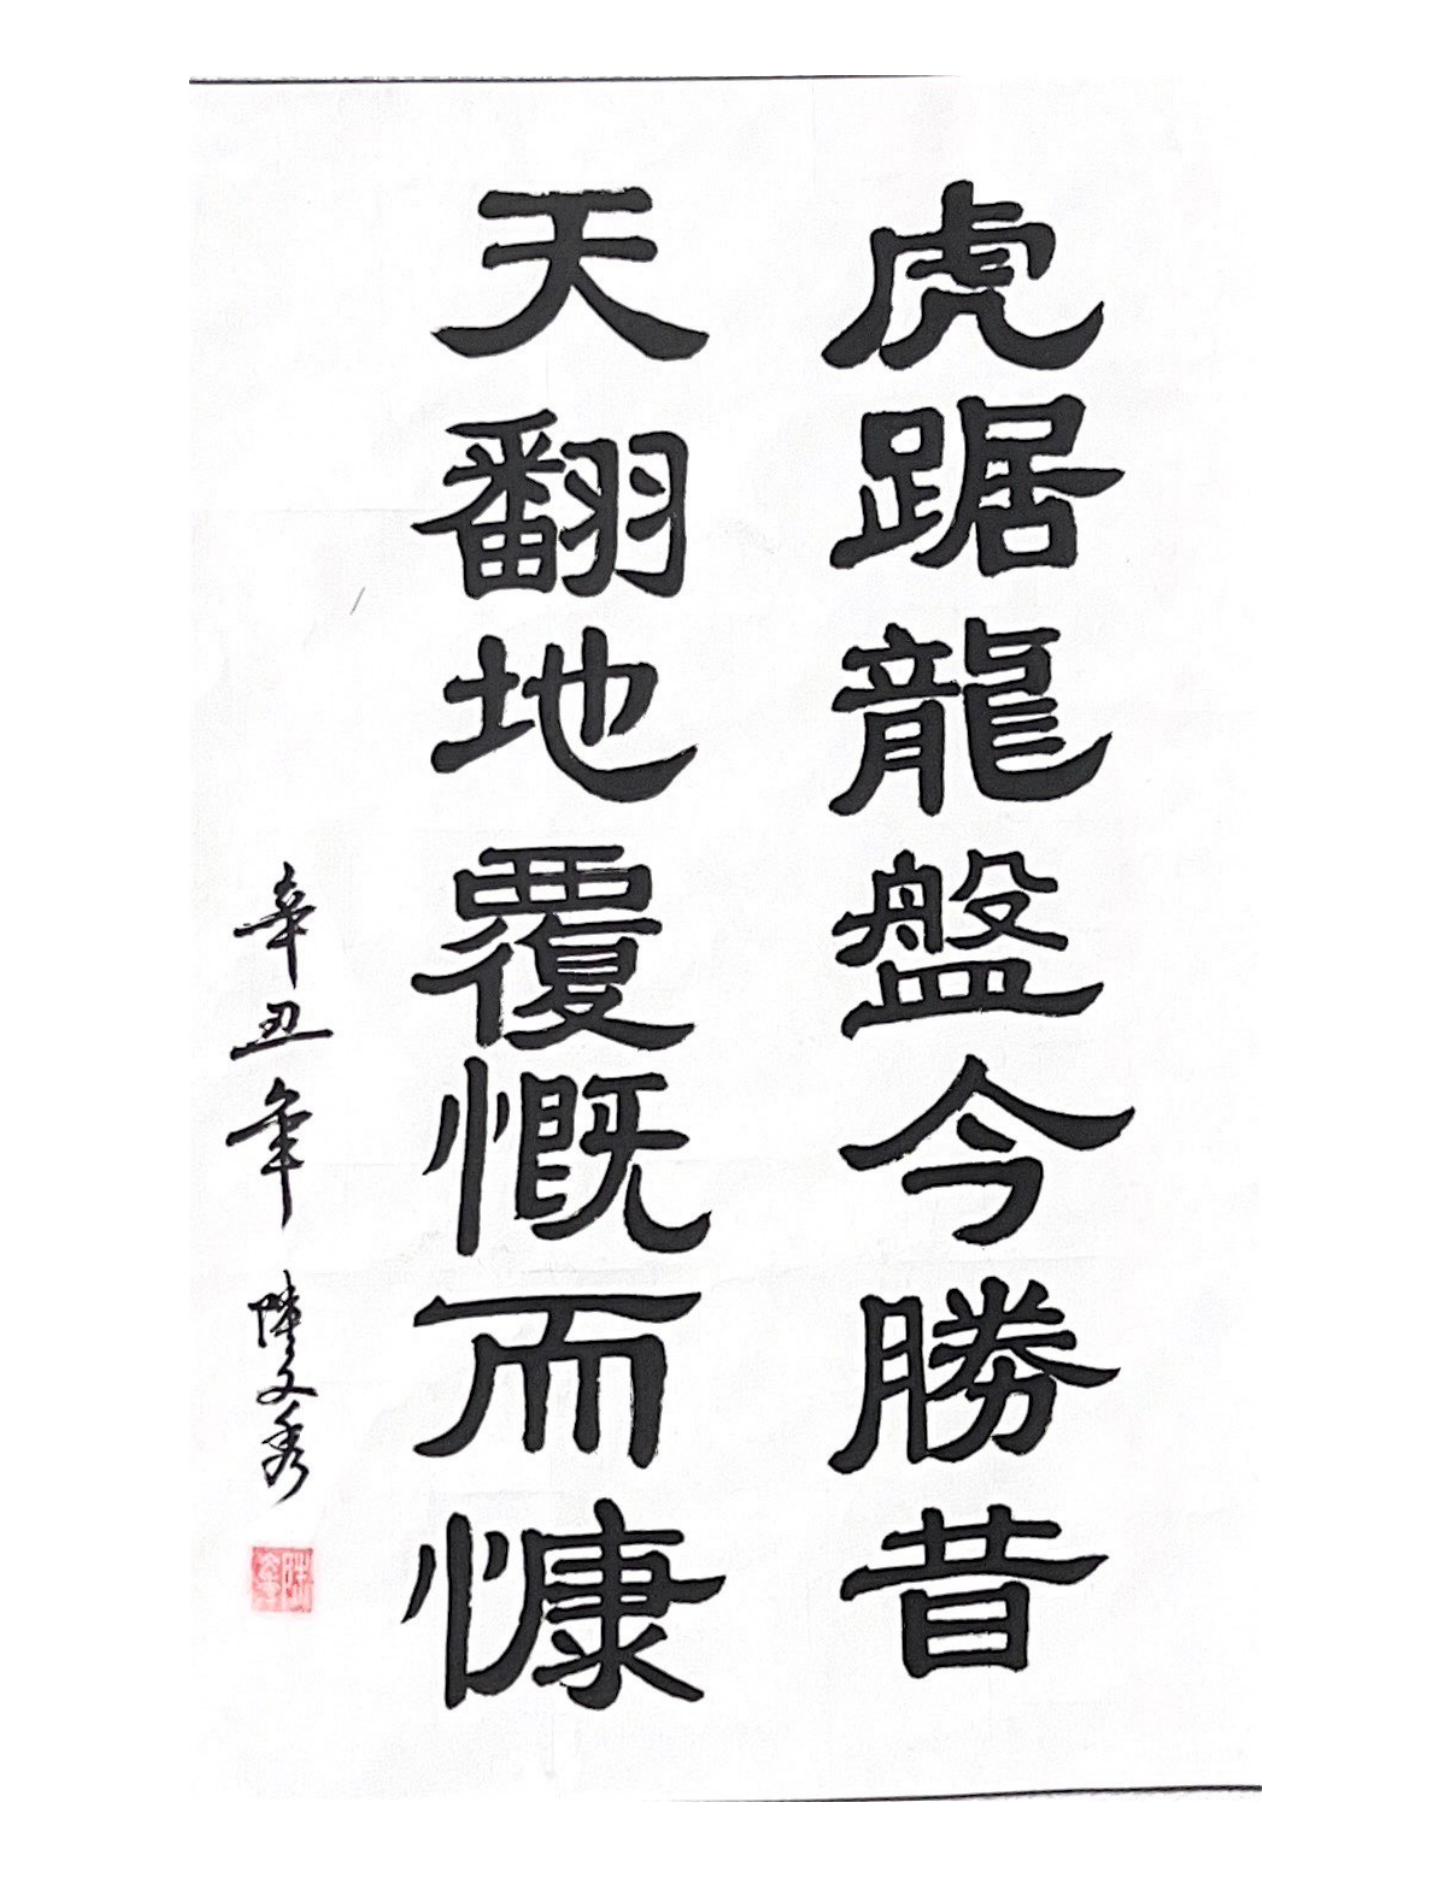 虎踞龍盤今勝昔
天翻地覆慨而慷
辛丑年 陸文秀